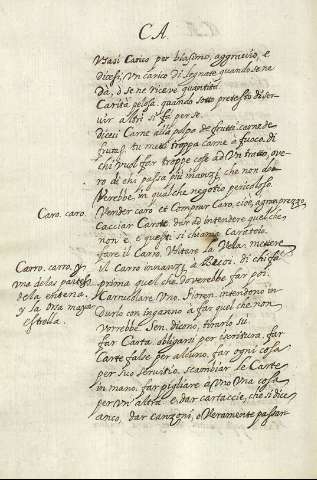 CA.
Usasi Carico per biasimo, aggravio, e
dicesi, Un carico di legnate quando se ne
dà, ò se ne riceve quantità.
Carità pelosa. quando sotto pretesto di ser-
vir altri si fa per se.
Dicesi Carne alla polpa de frutti: carne de
frutti. tu metti troppa carne à fuoco. di
chi vuol far troppe cose ad Un tratto, ove-
ro di chi passa più inanzi, che non dov-
verebbe, in qualche negotio pericoloso.
Caro. caro.
Vender caro et Comprar Caro, cioè, a gran prezzo.
Cacciar Carote. dar ad intendere quel che
non è. e questi si chiama Carotaio.
fare il Carro. Voltare la Vela. mettere
Carro. carro, y
una de las partes
de la entena,
y la Una mayor
estrella.
il Carro innanzi à Bovi. di chi fa
prima quel che dovrebbe far poi.
Carrucolare Uno. Fioren. intendono in-
durlo con inganno à far quel che non
vorrebbe. Sen. dicono, tirarlo sù.
far Carta. obligarsi per iscrittura. far
Carte false per alcuno. far ogni cosa
per suo servitio. scambiar le Carte
in mano. far pigliare à Uno Una cosa
per Un'altra. e dar cartaccie, che si dice
anco, dar canzoni, o Veramente passar-